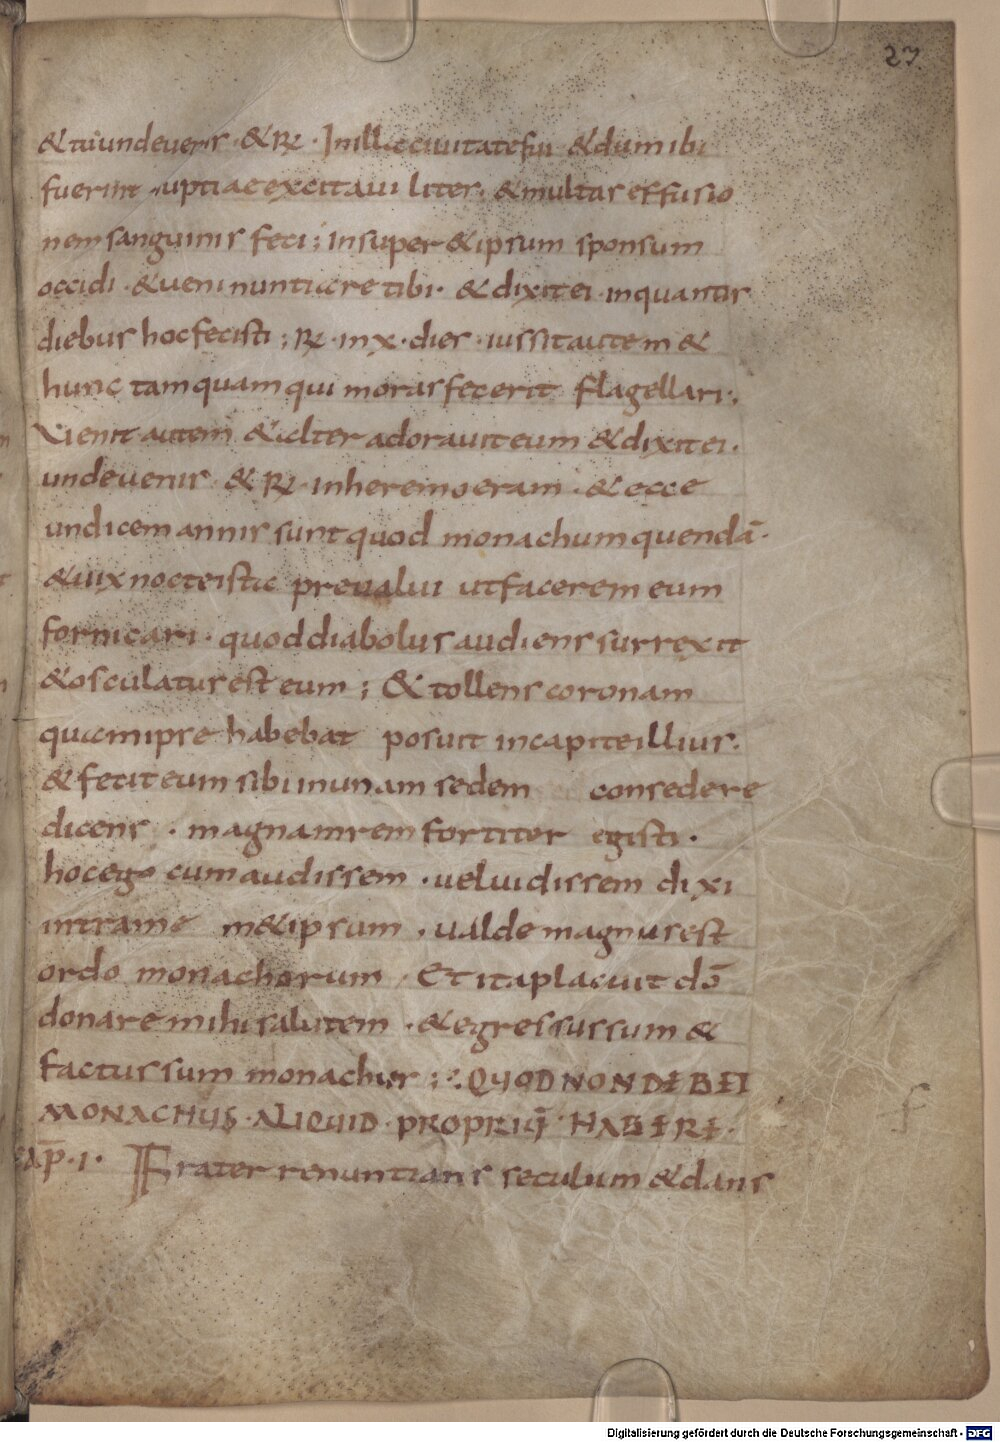 27
& tu unde uenis · & R · In illa ciuitate fui & dum ibi
fuerint nuptiae excitaui lites · & multas effusio
nem sanguinis feci ; insuper & ipsum sponsum
occidi · & ueni nuntiare tibi · & dixit ei · in quantis
diebus hoc fecisti ; R · in x · dies · iussit autem &
hunc tamquam qui moras fecerit flagellari ·,
Uenit autem & alter adorauit eum & dixit ei ·
unde uenis · & R · in heremo eram · & ecce
undicem annis sunt quod monachum quendā ·
& uix nocte ista preualui ut facerem eum
fornicari · quod diabolus audiens surrexit
& osculatus est eum ; & tollens coronam
quam ipse habebat posuit in capite illius ·
& fecit eum sibi in unam sedem consedere
dicens · magnam rem fortiter egisti ·
hoc ego cum audissem · uel uidissem dixi
intra me m&ipsum · ualde magnus est
ordo monachorum · Et ita placuit dō
donare mihi salutem · & egressus sum &
factus sum monachus ; QUOD NON DEBET
MONACHUS · ALIQUID · PROPRIŪ HABERE ·
cap̄ · i · Frater renuntians seculum & dans
Digitalisierung gefördert durch die Deutsche Forschungsgemeinschaft - DFG